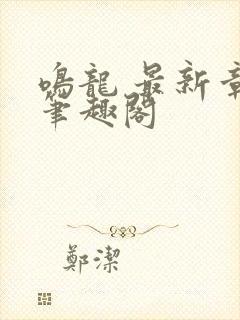 鳴龍 最新章
筆趣閣
鄭潔